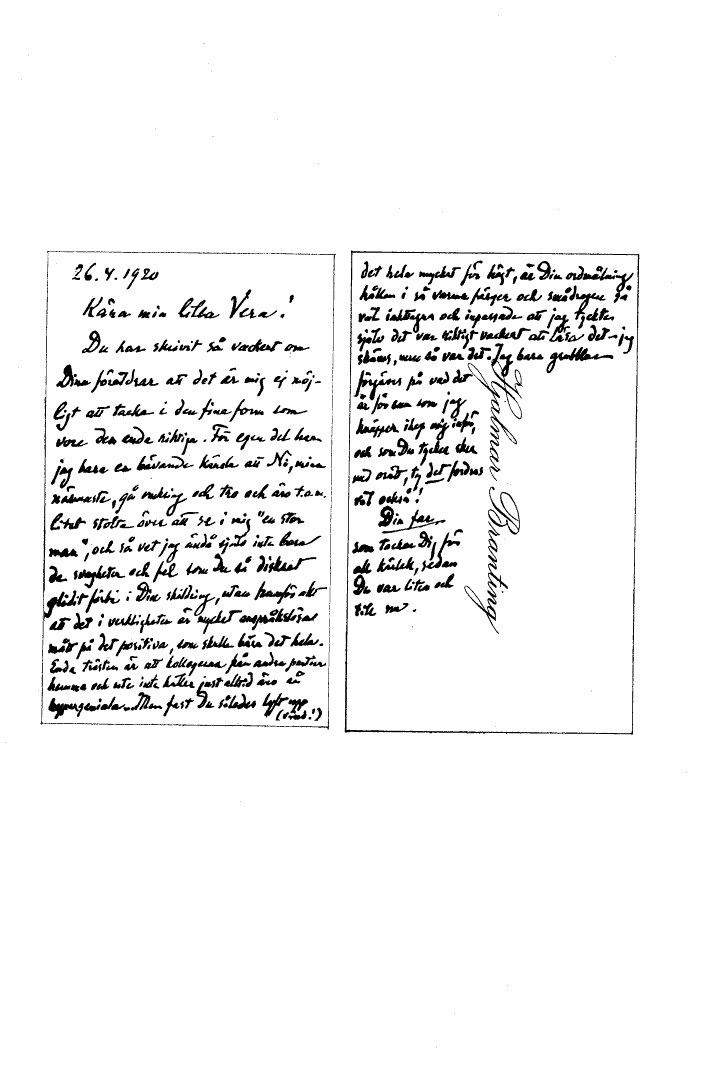 26.4.1920
Kära min lilla Vera!
Du har skrivit så vackert om
Dina föräldrar att det är mig ej möj-
ligt att tacka i den fina form som
vore den enda riktiga. För egen del har
jag bara en bävande känsla att Ni, mina
närmaste, gå omkring och tro och äro t.o.m.
litet stolta över att se i mig "en stor
man", och så vet jag ändå själv inte bara
de svagheter och fel som Du så diskret
glidit förbi i Din skildring, utan framför allt
att det i verkligheten är mycket anspråkslösa
mått på det positiva, som skulle bära det hela.
Enda trösten är att kollegerna från andra partier
hemma och ute inte heller just alltid äro så
hypergeniala. Men fast Du således lyft upp
(vänd!)
det hela mycket för högt, är Din ordmålning
hållen i så varma färger och smådragen så
väl iakttagna och inpassade att jag tyckte
själv det var riktigt vackert att läsa det – jag
skäms, men så var det. Jag bara grubblar
förgäves på vad det
är för en som jag
knäpper ihop mig inför,
och som Du tycker sker
med orätt, ty det fordras
väl också!
Din far
som tackar Dig för
all kärlek, sedan
Du var liten och
till nu.
Hjalmar Branting